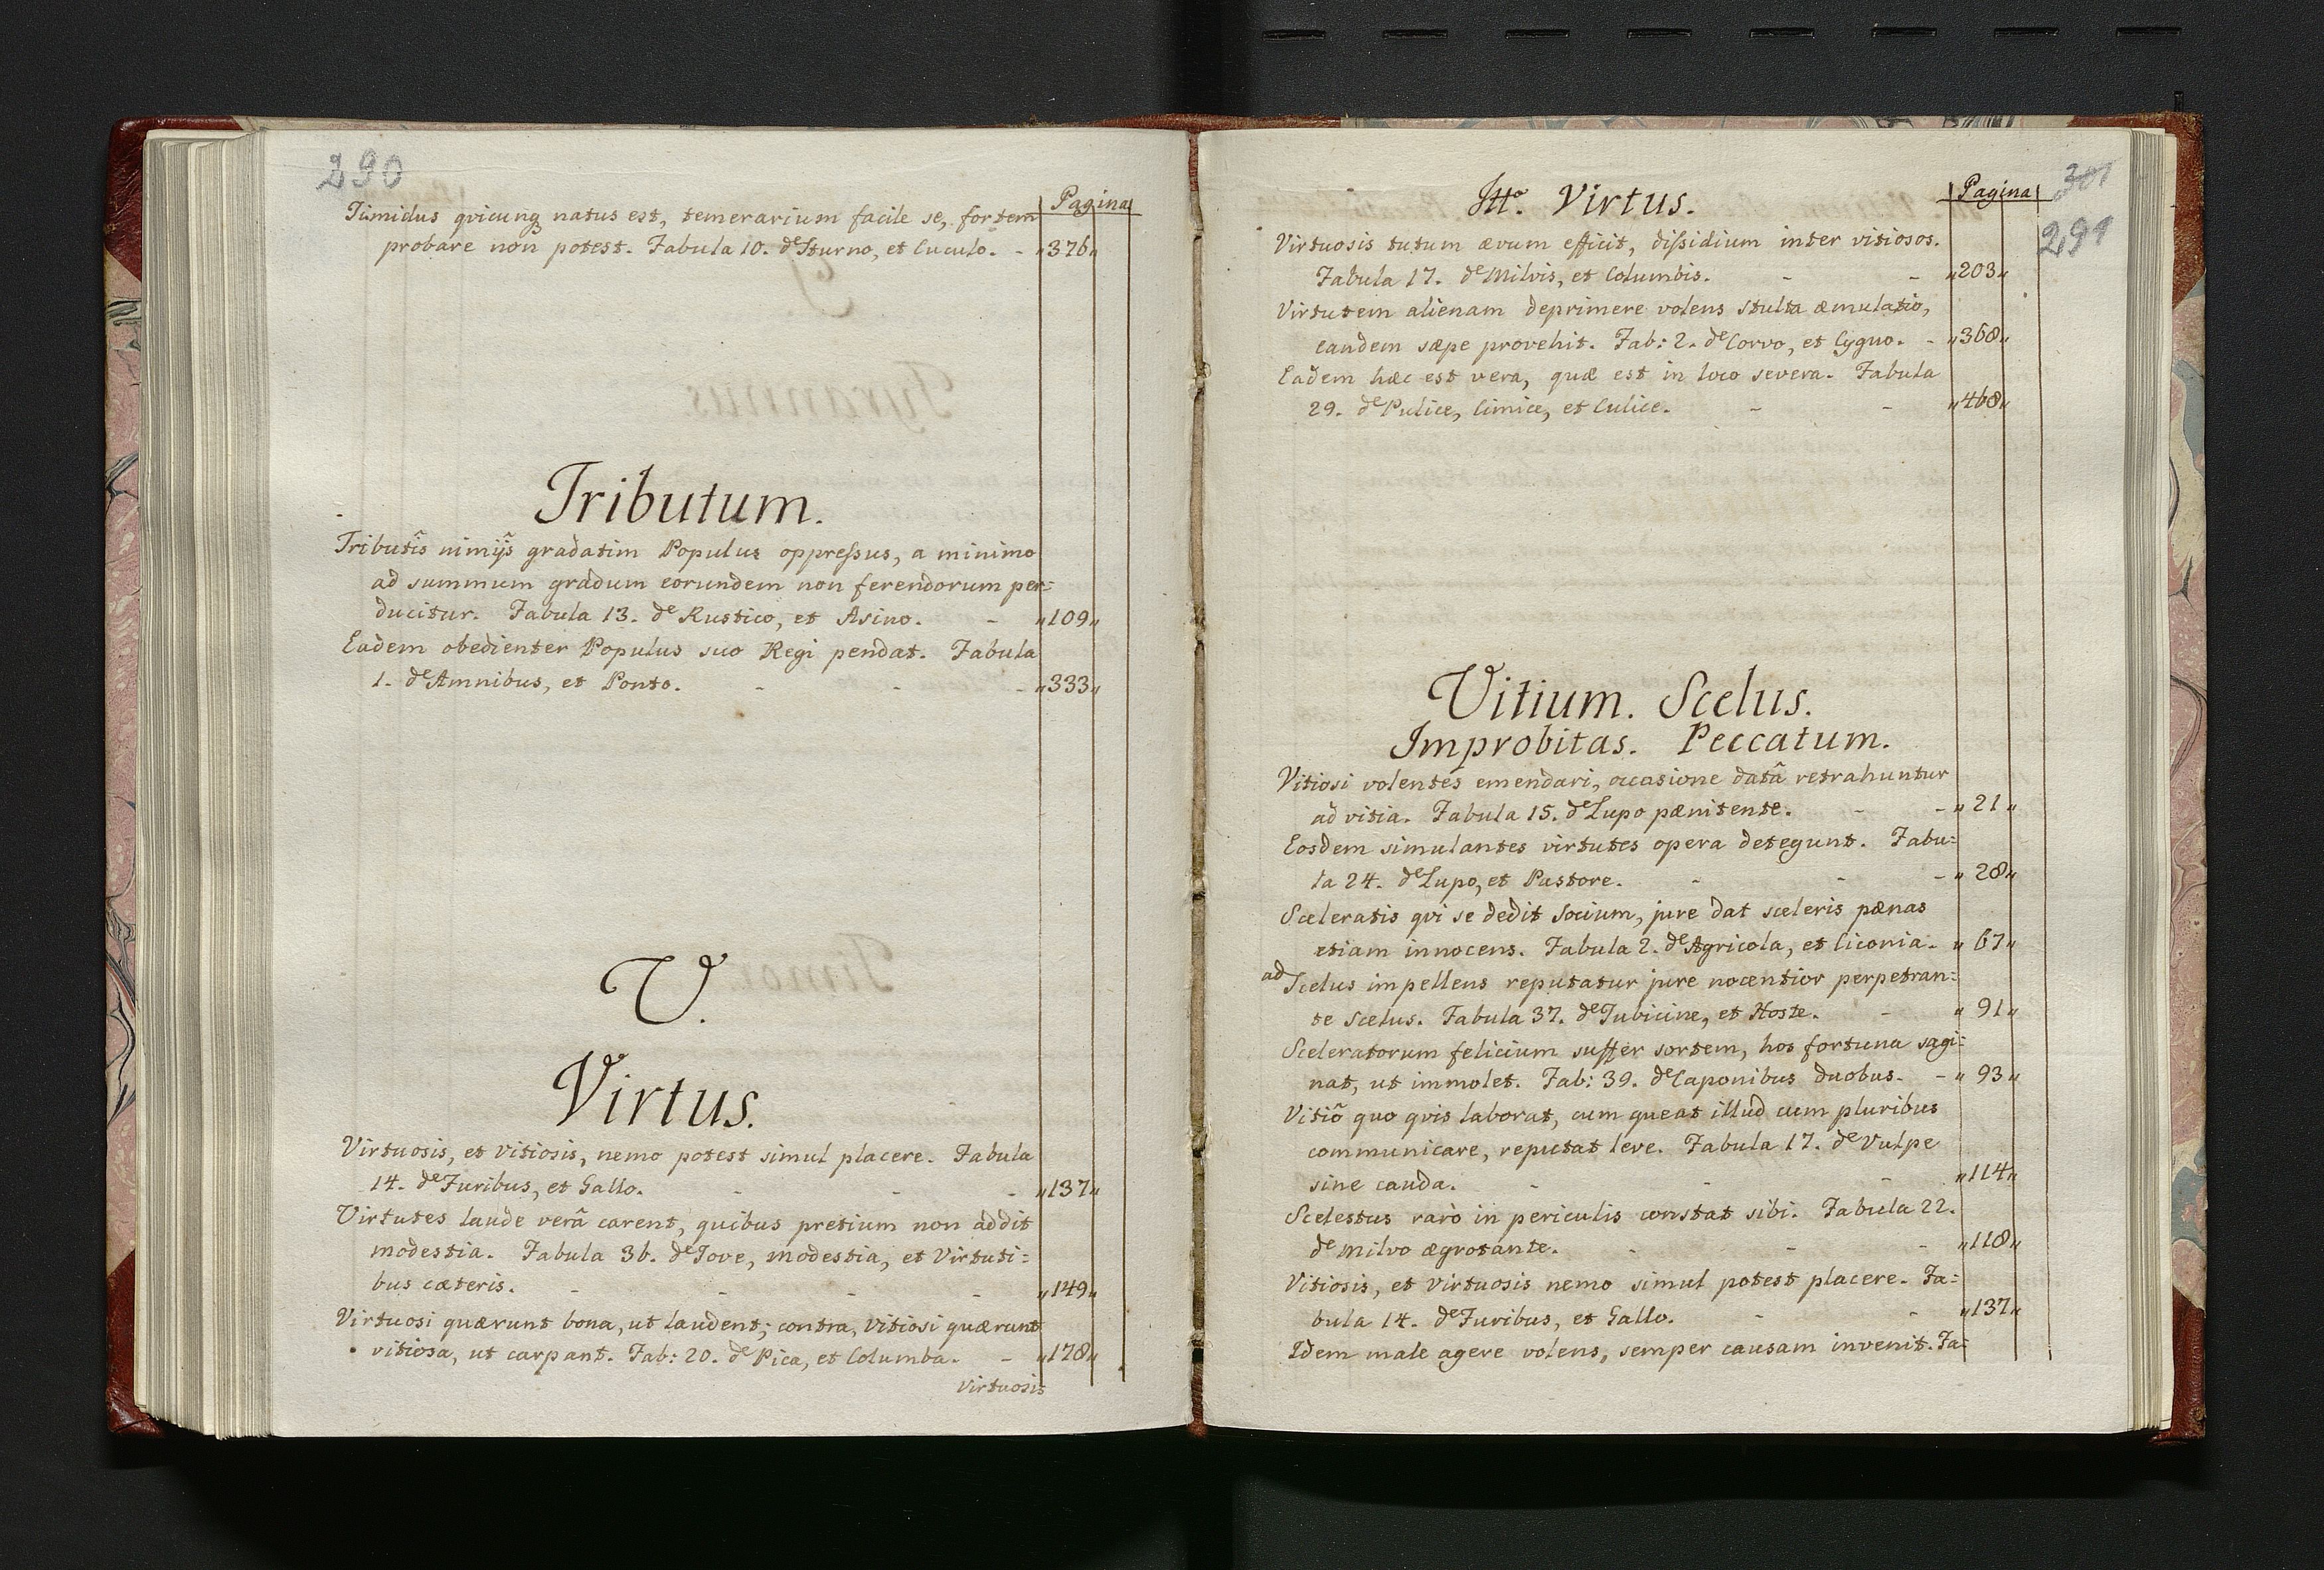 290
Pagina
Timidus qvicunq natus est, temerarium facile se, fortem
probare non potest. Fabula 10. de Sturno, et Cuculo. - „376„
Tributum.
Tributis nimijs gradatim Populus oppressus, a minimo
ad summum gradum eorundem non ferendorum per=
ducitur. Fabula 13. de Rustico, et Asino. - „109„
Eadem obedienter Populus suo Regi pendat. Fabula
1. de Amnibus, et Ponto. - - - „333„
V.
Virtus.
Virtuosis, et vitiosis, nemo potest simul placere. Fabula
14. de Furibus, et Gallo. - - - „137„
Virtutes laude verâ carent, quibus pretium non addit
modestia. Fabula 36. de Jove, modestia, et Virtuti=
bus cæteris. - - - - „149„
Virtuosi quærunt bona, ut laudent; contra, vitiosi quærunt
vitiosa, ut carpant. Fab: 20. de Pica, et Columba. - „178„
virtuosis
301
291
Pagina
Itto. Virtus.
Virtuosis tutum ævum efficit, dissidium inter vitiosos.
Fabula 17. de Milvis, et Columbis. - - „203„
Virtutem alienam deprimere volens stulta æmulatio,
eandem sæpe provehit. Fab: 2. de Corvo, et Cygno. - „368„
Eadem hæc est vera, quæ est in loco severa. Fabula
29. de Pulice, Cimice, et Culice. - - „468„
Vitium. Scelus.
Improbitas. Peccatum.
Vitiosi volentes emendari, occasione datâ retrahuntur
ad vitia. Fabula 15. de Lupo pænitente. - - „21„
Eosdem simulantes virtutes opera detegunt. Fabu=
la 24. de Lupo, et Pastore. - - - „28„
Sceleratis qvi se dedit socium, jure dat sceleris pænas
etiam innocens. Fabula 2. de Agricola, et Ciconia. - „67„
ad Scelus impellens reputatur jure nocentior perpetran=
te scelus. Fabula 37. de Tubicine, et Hoste. - „91„
Sceleratorum felicium suffer sortem, hos fortuna sagi=
nat, ut immolet. Fab: 39. de Caponibus duobus. - „93„
Vitiô quo qvis laborat, cum queat illud cum pluribus
communicare, reputat leve. Fabula 17. de Vulpe
sine cauda. - - - „114„
Scelestus rarò in periculis constat sibi. Fabula 22.
de Milvo ægrotante. - - - „118„
Vitiosis, et virtuosis nemo simul potest placere. Fa=
bula 14. de Furibus, et Gallo. - - „137„
Idem male agere volens, semper causam invenit. Fa=